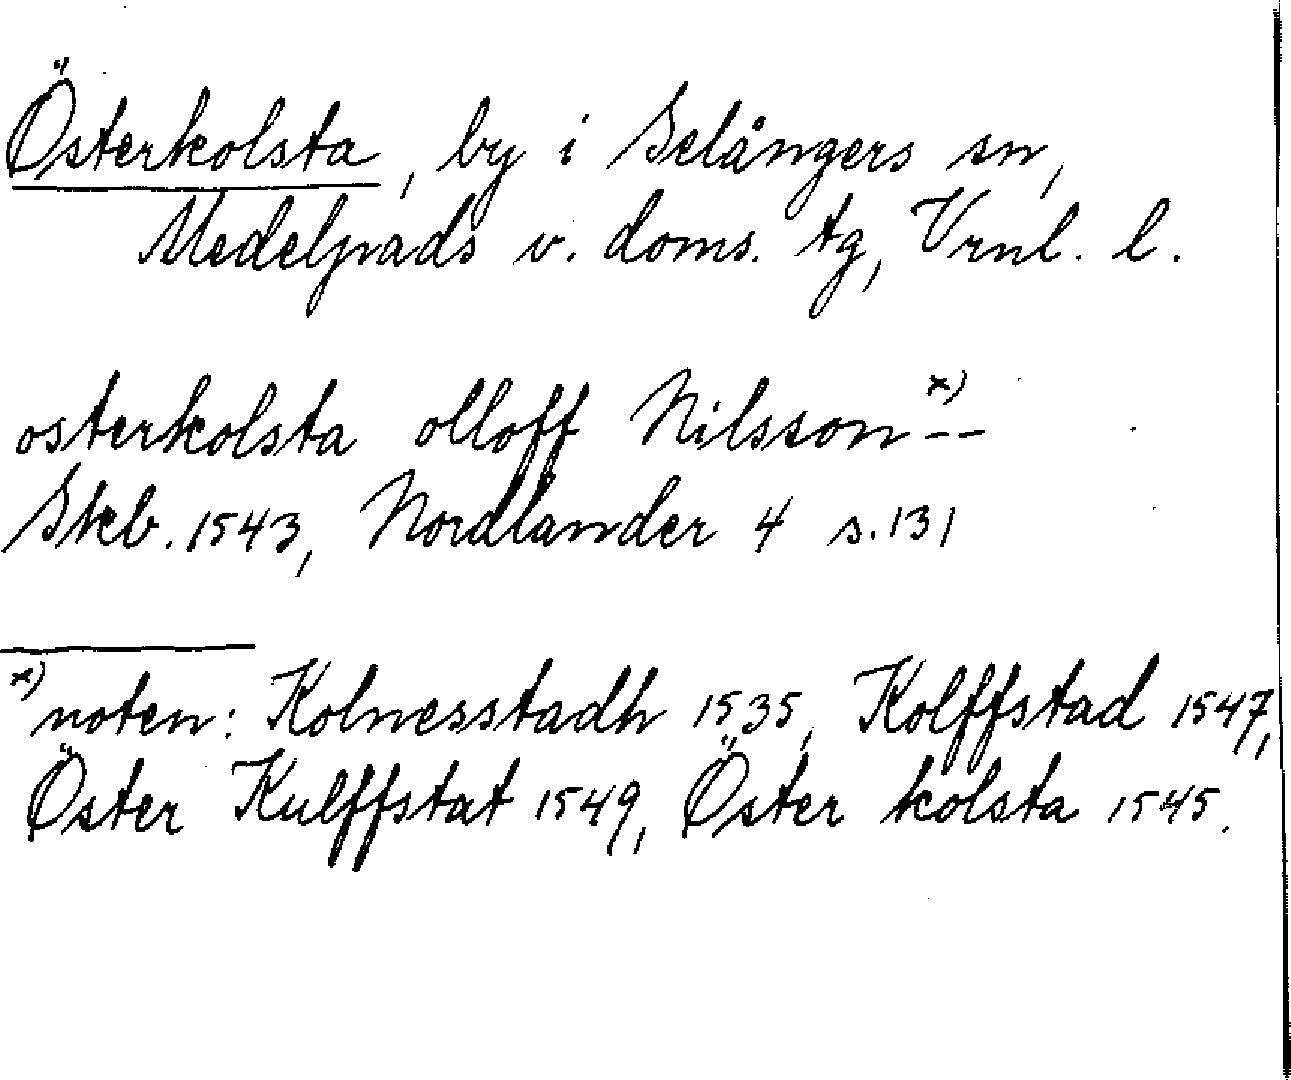 Österkolsta, by i Selångers sn,
Medelpads v. doms. tg, Vrnl. l.
osterkolsta olloff Nilsson x) --
Skb. 1543, Nordlander 4 s. 131
x) noten: Kolnesstadh 1535, Kolffstad 1547,
Öster Kulffstat 1549, Öster kolsta 1545.